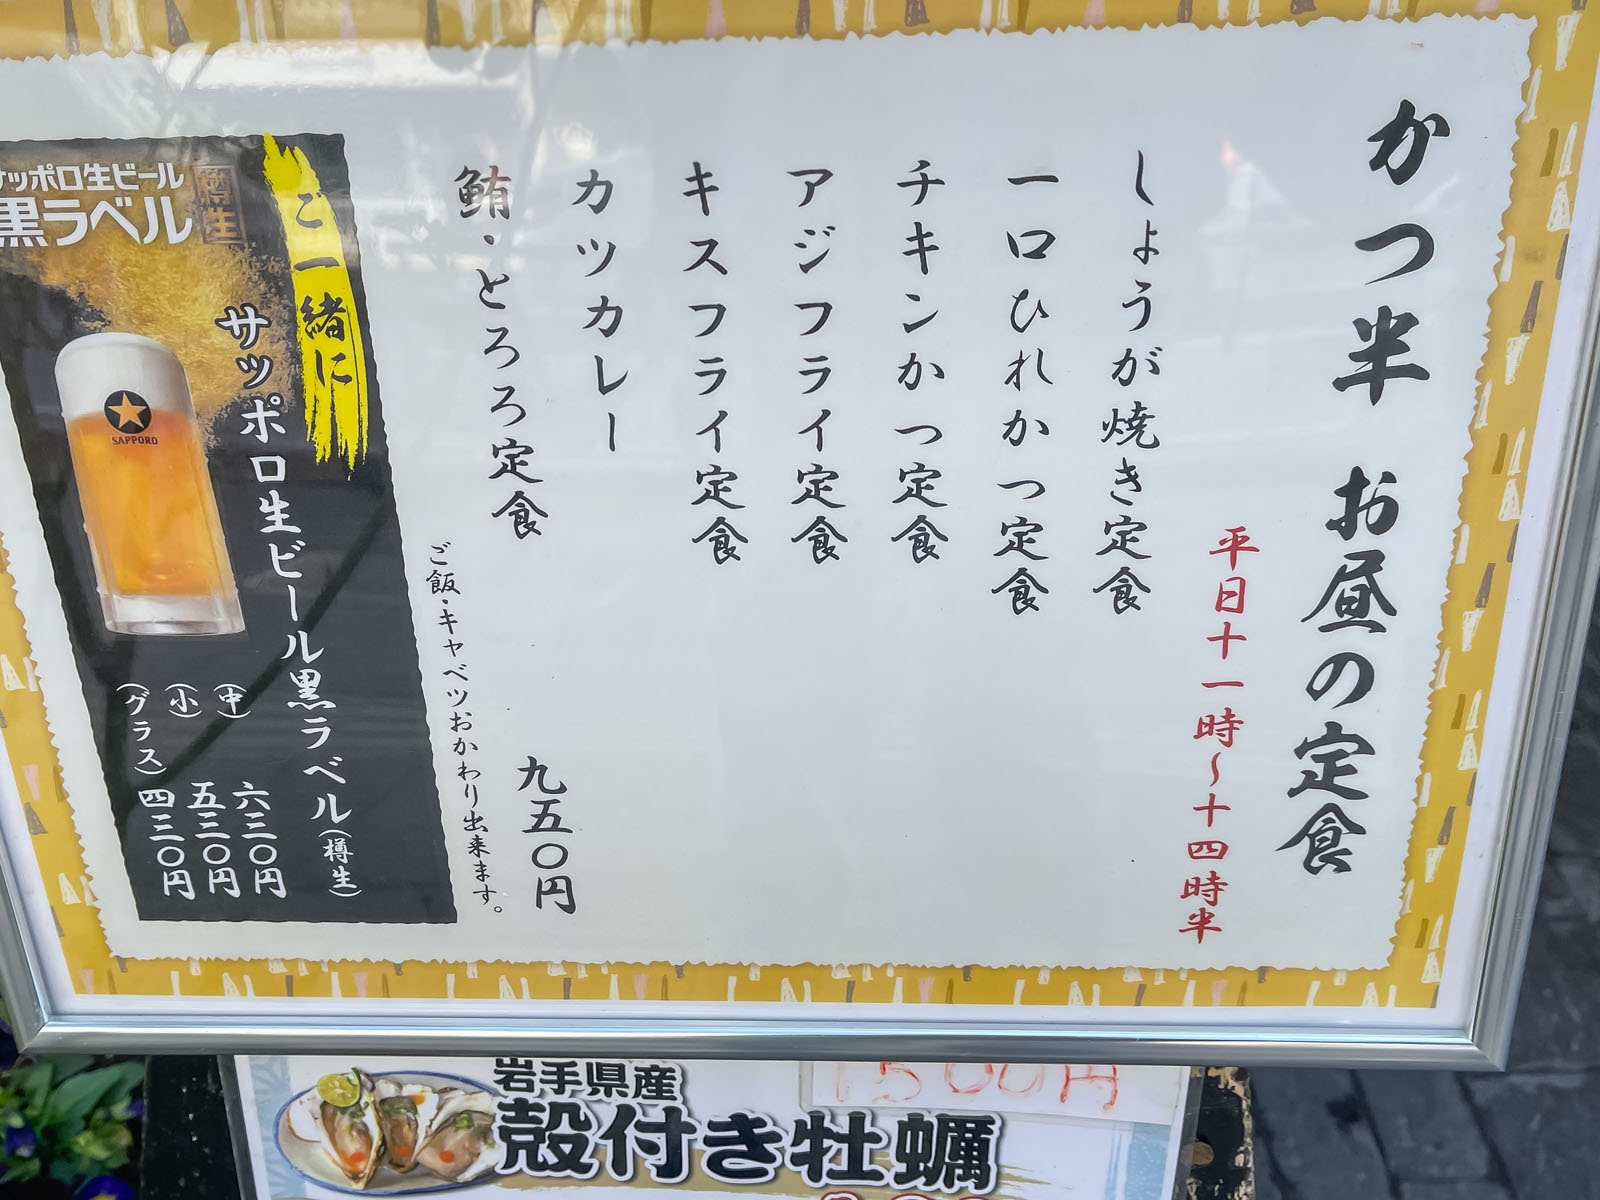 かつ半 お昼の定食
平日十一時〜十四時半
しょうが焼き定食
一口ひれかつ定食
チキンかつ定食
アジフライ定食
キスフライ定食
カツカレー
鮪・とろろ定食
九五〇円
ご飯・キャベツおかわり出来ます。
ご一緒に
サッポロ生ビール黒ラベル(樽生)
(中) 六三〇円
(小) 五三〇円
(グラス) 四三〇円
サッポロ生ビール
黒ラベル
樽生
SAPPORO
岩手県産
殻付き牡蠣
1500円